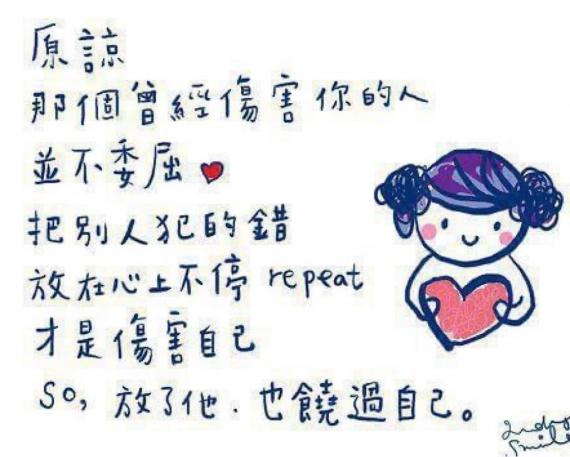 原諒
那個曾經傷害你的人
並不委屈
把別人犯的錯
放在心上不停 repeat
才是傷害自己
So, 放了他．也饒過自己。
Smile